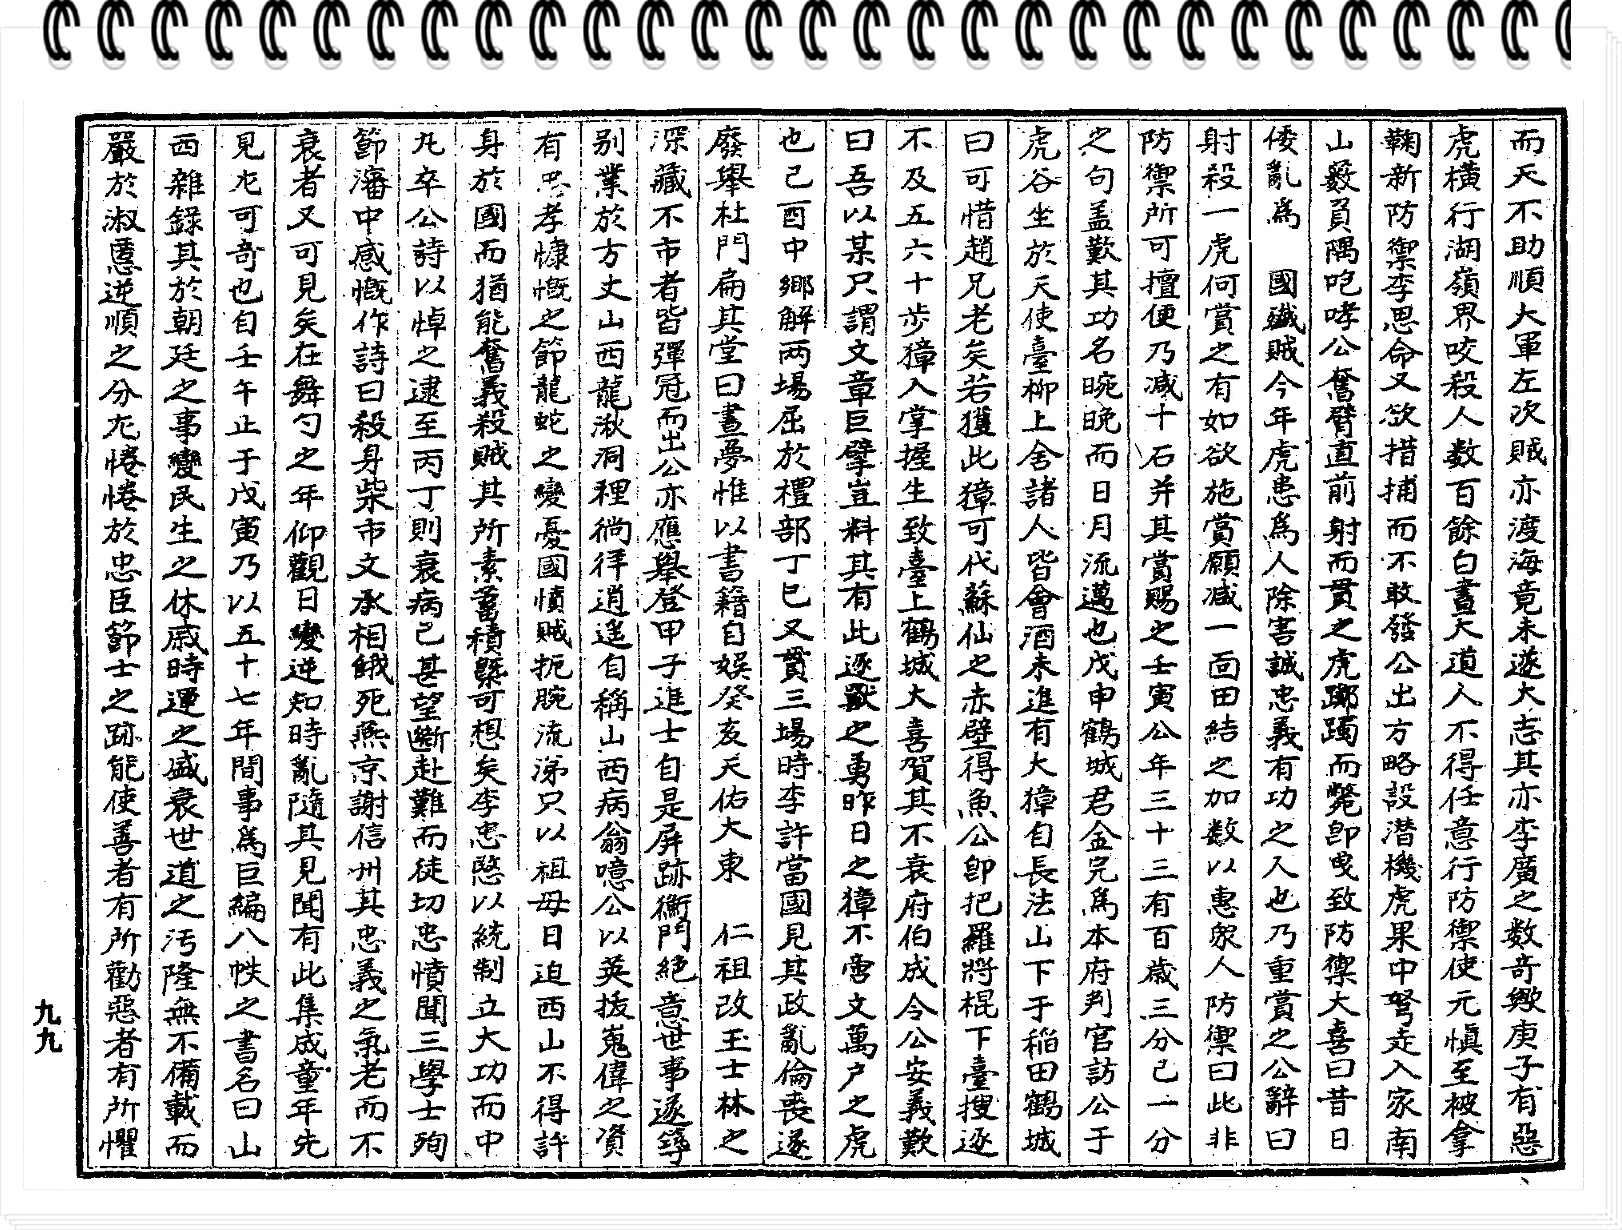 而天不助順大軍左次賊亦渡海竟未遂大志其亦李廣之数奇歟庚子有惡
虎横行湖嶺界咬殺人数百餘白晝大道人不得任意行防禦使元愼至被拿
鞠新防禦李思命又欲措捕而不敢發公出方略設潜機虎果中弩走入家南
山藪負隅咆哮公奮臂直前射而貫之虎躑躅而斃卽曵致防禦大喜曰昔日
倭亂爲　國殲賊今年虎患爲人除害誠忠義有功之人也乃重賞之公辭曰
射殺一虎何賞之有如欲施賞願减一面田結之加数以惠衆人防禦曰此非
防禦所可擅便乃减十石并其賞賜之壬寅公年三十三有百歲三分已一分
之句盖歎其功名晼晩而日月流邁也戊申鶴城君金完爲本府判官訪公于
虎谷坐於天使臺柳上舍諸人皆會酒未進有大獐自長法山下于稲田鶴城
曰可惜趙兄老矣若獲此獐可代蘇仙之赤壁得魚公卽把羅將棍下臺搜逐
不及五六十步獐入掌握生致臺上鶴城大喜賀其不衰府伯成令公安義歎
曰吾以某只謂文章巨擘豈料其有此逐獸之勇昨日之獐不啻文萬户之虎
也己酉中鄉解两場屈於禮部丁巳又貫三場時李許當國見其政亂倫喪遂
廢舉杜門扁其堂曰晝夢惟以書籍自娛癸亥天佑大東　仁祖改玉士林之
深藏不市者皆彈冠而出公亦應舉登甲子進士自是屏跡衡門絕意世事遂築
别業於方丈山西龍湫洞裡徜徉逍遙自稱山西病翁噫公以英拔嵬偉之資
有忠孝慷慨之節龍蛇之變憂國憤賊扼腕流涕只以祖母日迫西山不得許
身於國而猶能奮義殺賊其所素蓄積槩可想矣李忠愍以統制立大功而中
丸卒公詩以悼之逮至丙丁則衰病已甚望斷赴難而徒切忠憤聞三學士殉
節瀋中感慨作詩曰殺身柴市文承相餓死燕京謝信州其忠義之氣老而不
衰者又可見矣在舞勺之年仰觀日變逆知時亂隨其見聞有此集成童年先
見尤可奇也自壬午止于戊寅乃以五十七年間事爲巨編八帙之書名曰山
西雜錄其於朝廷之事變民生之休戚時運之盛衰世道之汚隆無不備載而
嚴於淑慝逆順之分尤惓惓於忠臣節士之跡能使善者有所勸惡者有所懼
九九